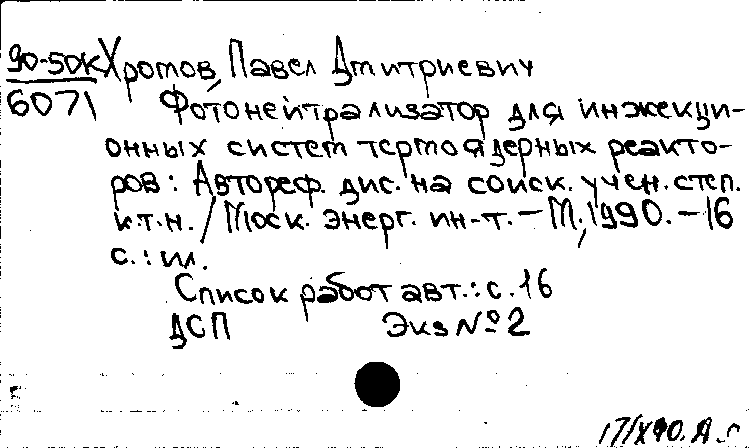 90-50К Хромов, Павел Дмитриевич
6071 Фотонейтрализатор для инжекци-
онных систем термоядерных реакто-
ров: Автореф. дис. на соиск. учен. степ.
к.т.н. / Моск. энерг. ин-т. – М., 1990. – 16
с.: ил.
Список работ авт.: с. 16
ДСП Экз № 2
17/X90.